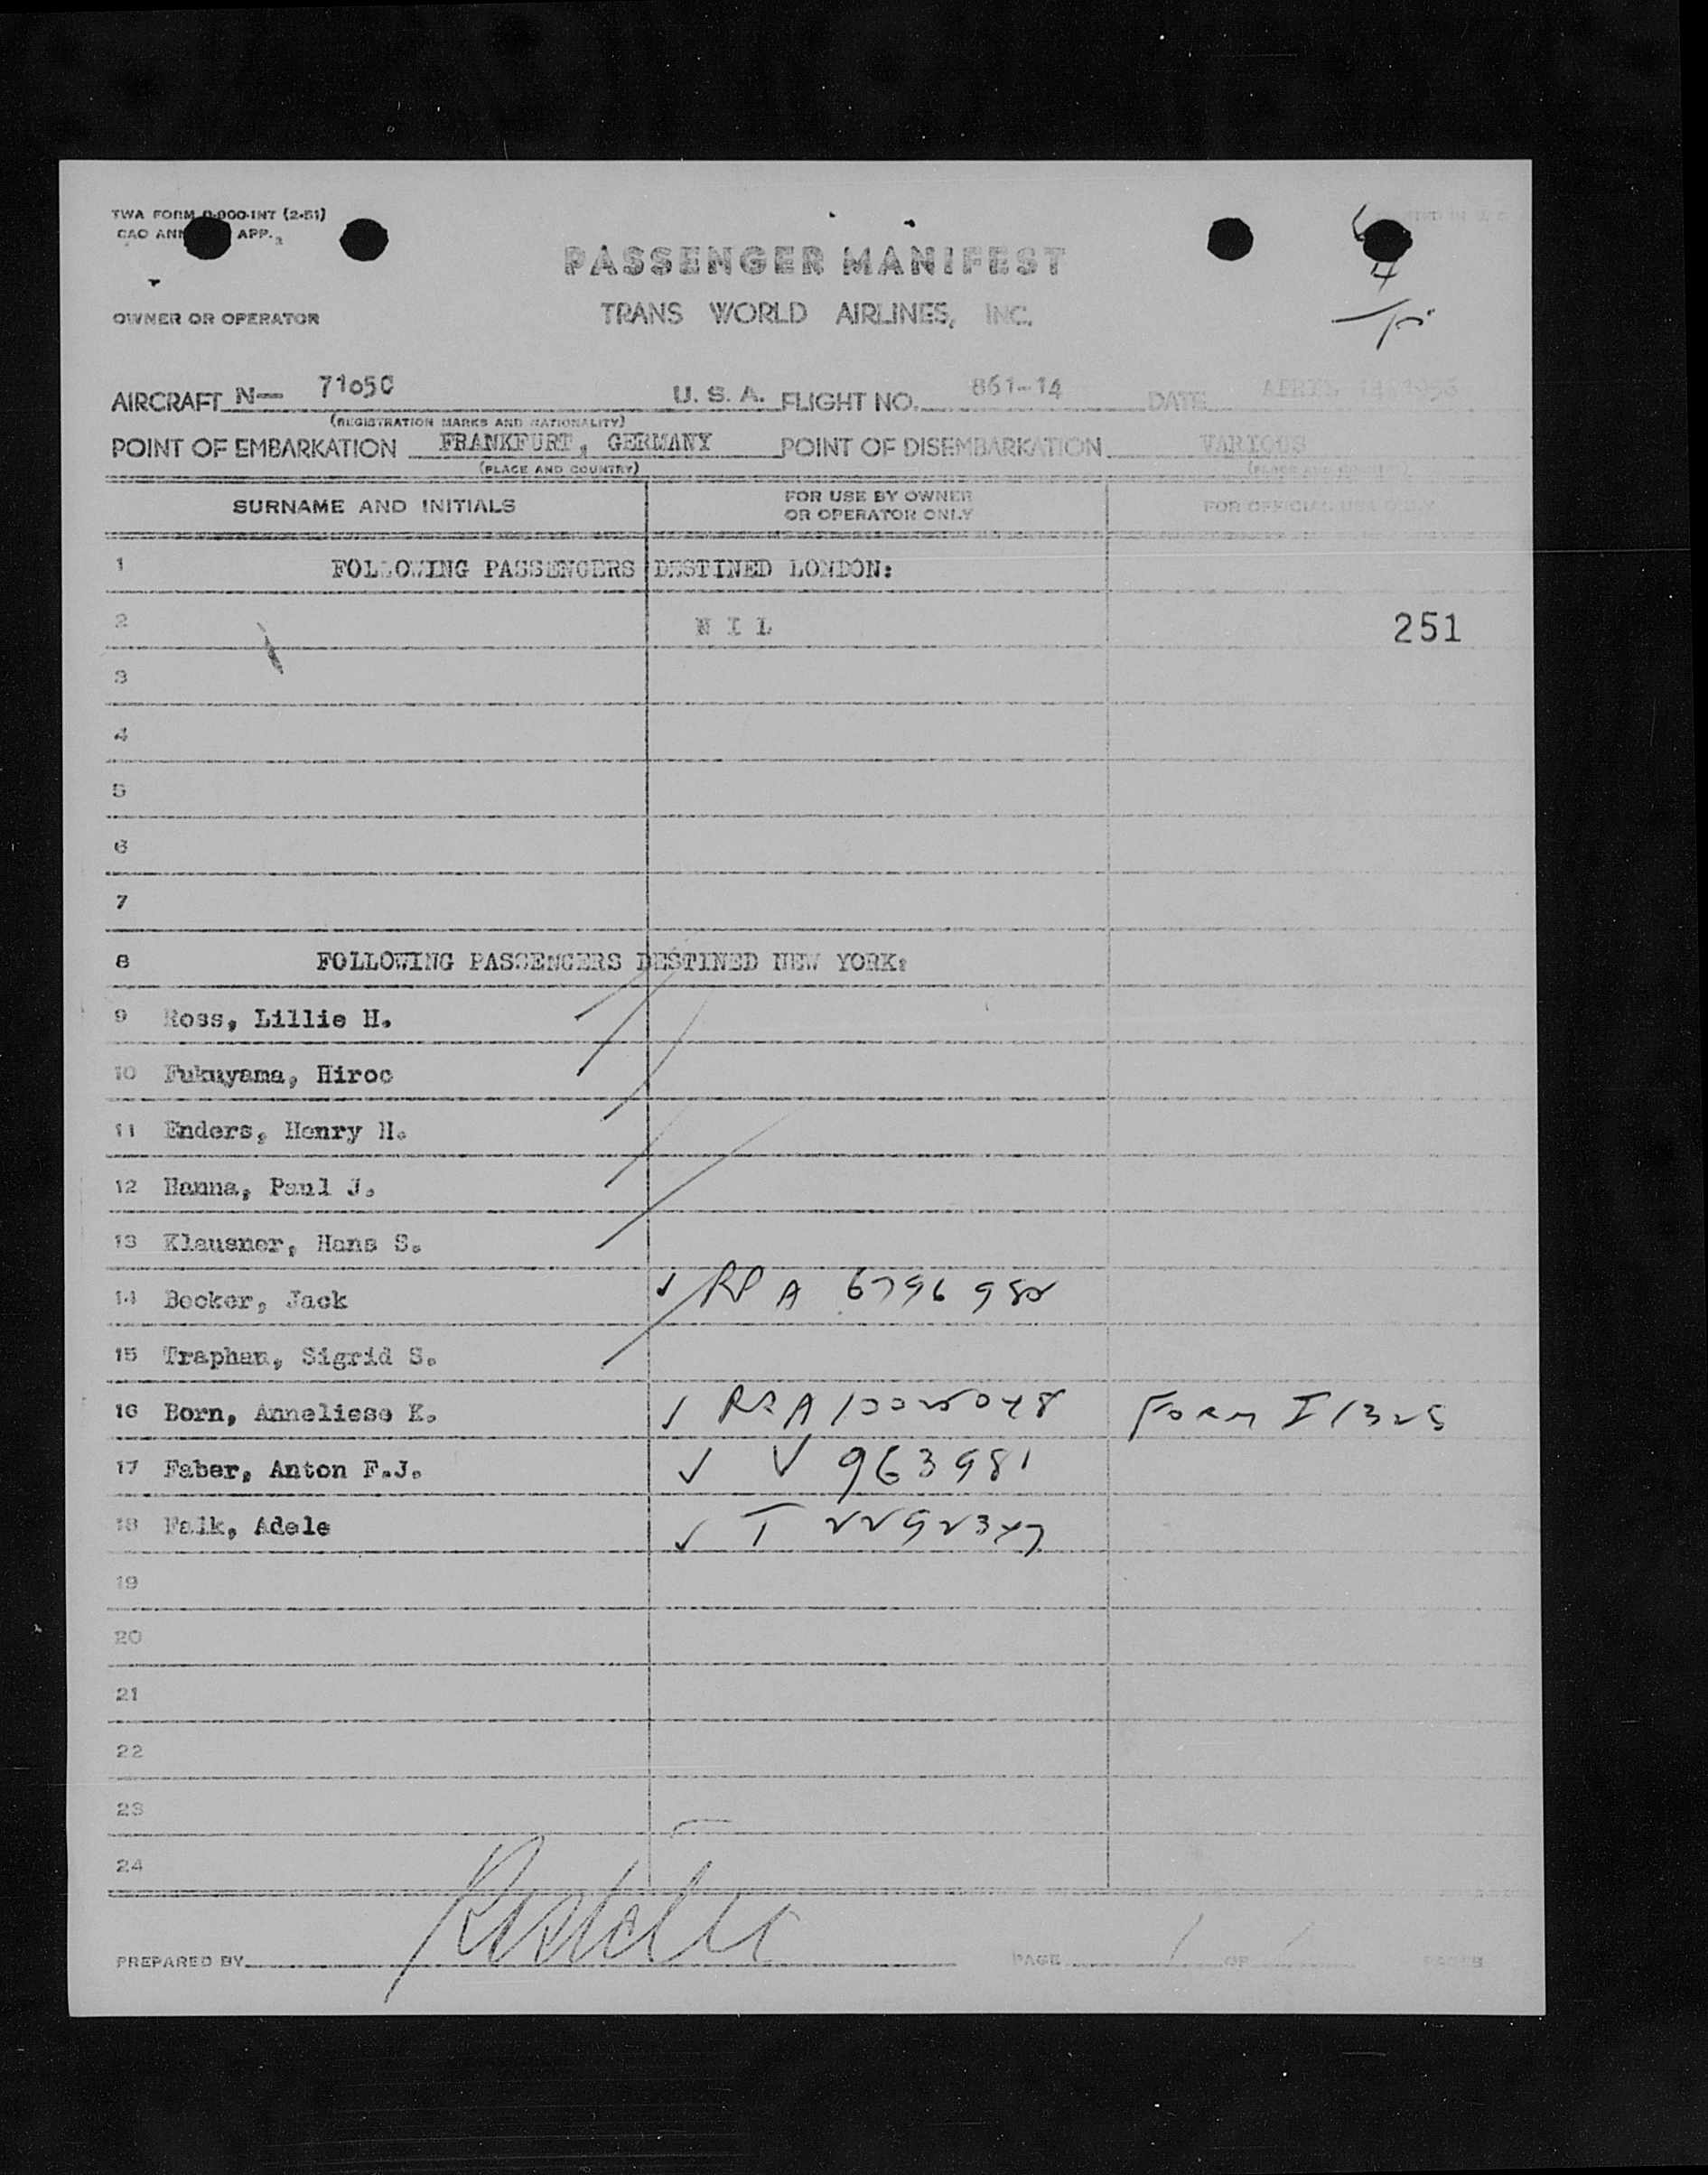 TWA FORM 0-900-INT (2-51)
CAO APP.
PASSENGER MANIFEST
OWNER OR OPERATOR TRANS WORLD AIRLINES, INC.
AIRCRAFT N— 7105C U. S. A. FLIGHT NO. 861-14 DATE APRIL
(REGISTRATION MARKS AND NATIONALITY)
POINT OF EMBARKATION FRANKFURT, GERMANY POINT OF DISEMBARKATION VARIOUS
(PLACE AND COUNTRY) (PLACE AND COUNTRY)
SURNAME AND INITIALS FOR USE BY OWNER OR OPERATOR ONLY FOR OFFICIAL USE ONLY
1 FOLLOWING PASSENGERS DESTINED LONDON:
2 N I L 251
3
4
5
6
7
8 FOLLOWING PASSENGERS DESTINED NEW YORK:
9 Ross, Lillie H.
10 Fukuyama, Hiroo
11 Enders, Henry H.
12 Hanna, Paul J.
13 Klausner, Hans S.
14 Becker, Jack ✓ RP A 6796 982
15 Traphan, Sigrid S.
16 Born, Anneliese K. ✓ A10025048 FORM I 1325
17 Faber, Anton F.J. ✓ V 963981
18 Falk, Adele ✓ T 2292347
19
20
21
22
23
24
PREPARED BY PAGE 1 OF 1 PAGES